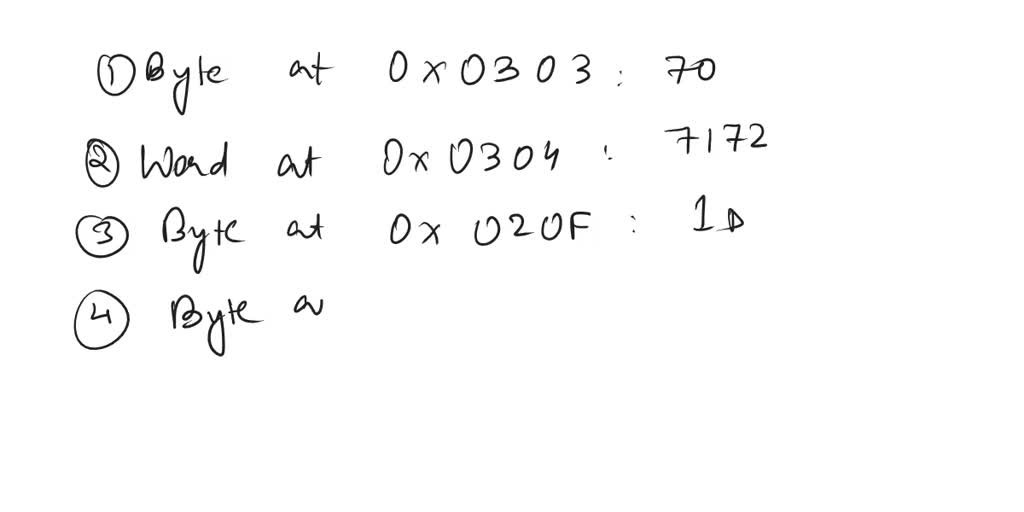 ① Byte at 0x0303 : 70
② Word at 0x0304 : 7172
③ Byte at 0x020F : 1D
④ Byte a